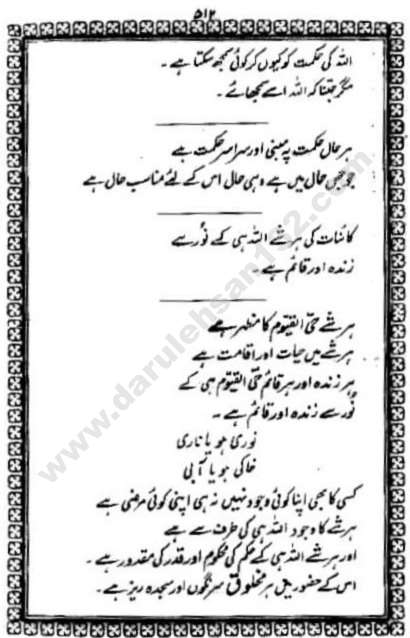 ۵۱۲
اللہ کی حکمت کو کیوں کر کوئی سمجھ سکتا ہے ۔
مگر جتنا کہ اللہ اسے سمجھائے ۔
ہر حال حکمت پہ مبنی اور سراسر حکمت ہے
جو جس حال میں ہے وہی حال اس کے لئے مناسب حال ہے
کائنات کی ہر شے اللہ ہی کے نُور سے
زندہ اور قائم ہے ۔
ہر شے حیّ القیّوم کا مظہر ہے
ہر شے میں حیات اور اقامت ہے
ہر زندہ اور ہر قائم حیّ القیوم ہی کے
نُور سے زندہ اور قائم ہے ۔
نوری ہو یا ناری
خاکی ہو یا آبی
کسی کا بھی اپنا کوئی وجود نہیں نہ ہی اپنی کوئی مرضی ہے
ہر شے کا وجود اللہ ہی کی طرف سے ہے
اور ہر شے اللہ ہی کے حکم کی محکوم اور قدر کی مقدور ہے ۔
اس کے حضور میں ہر مخلوق سرنگوں اور سجدہ ریز ہے ۔
www.darulehsan132.com